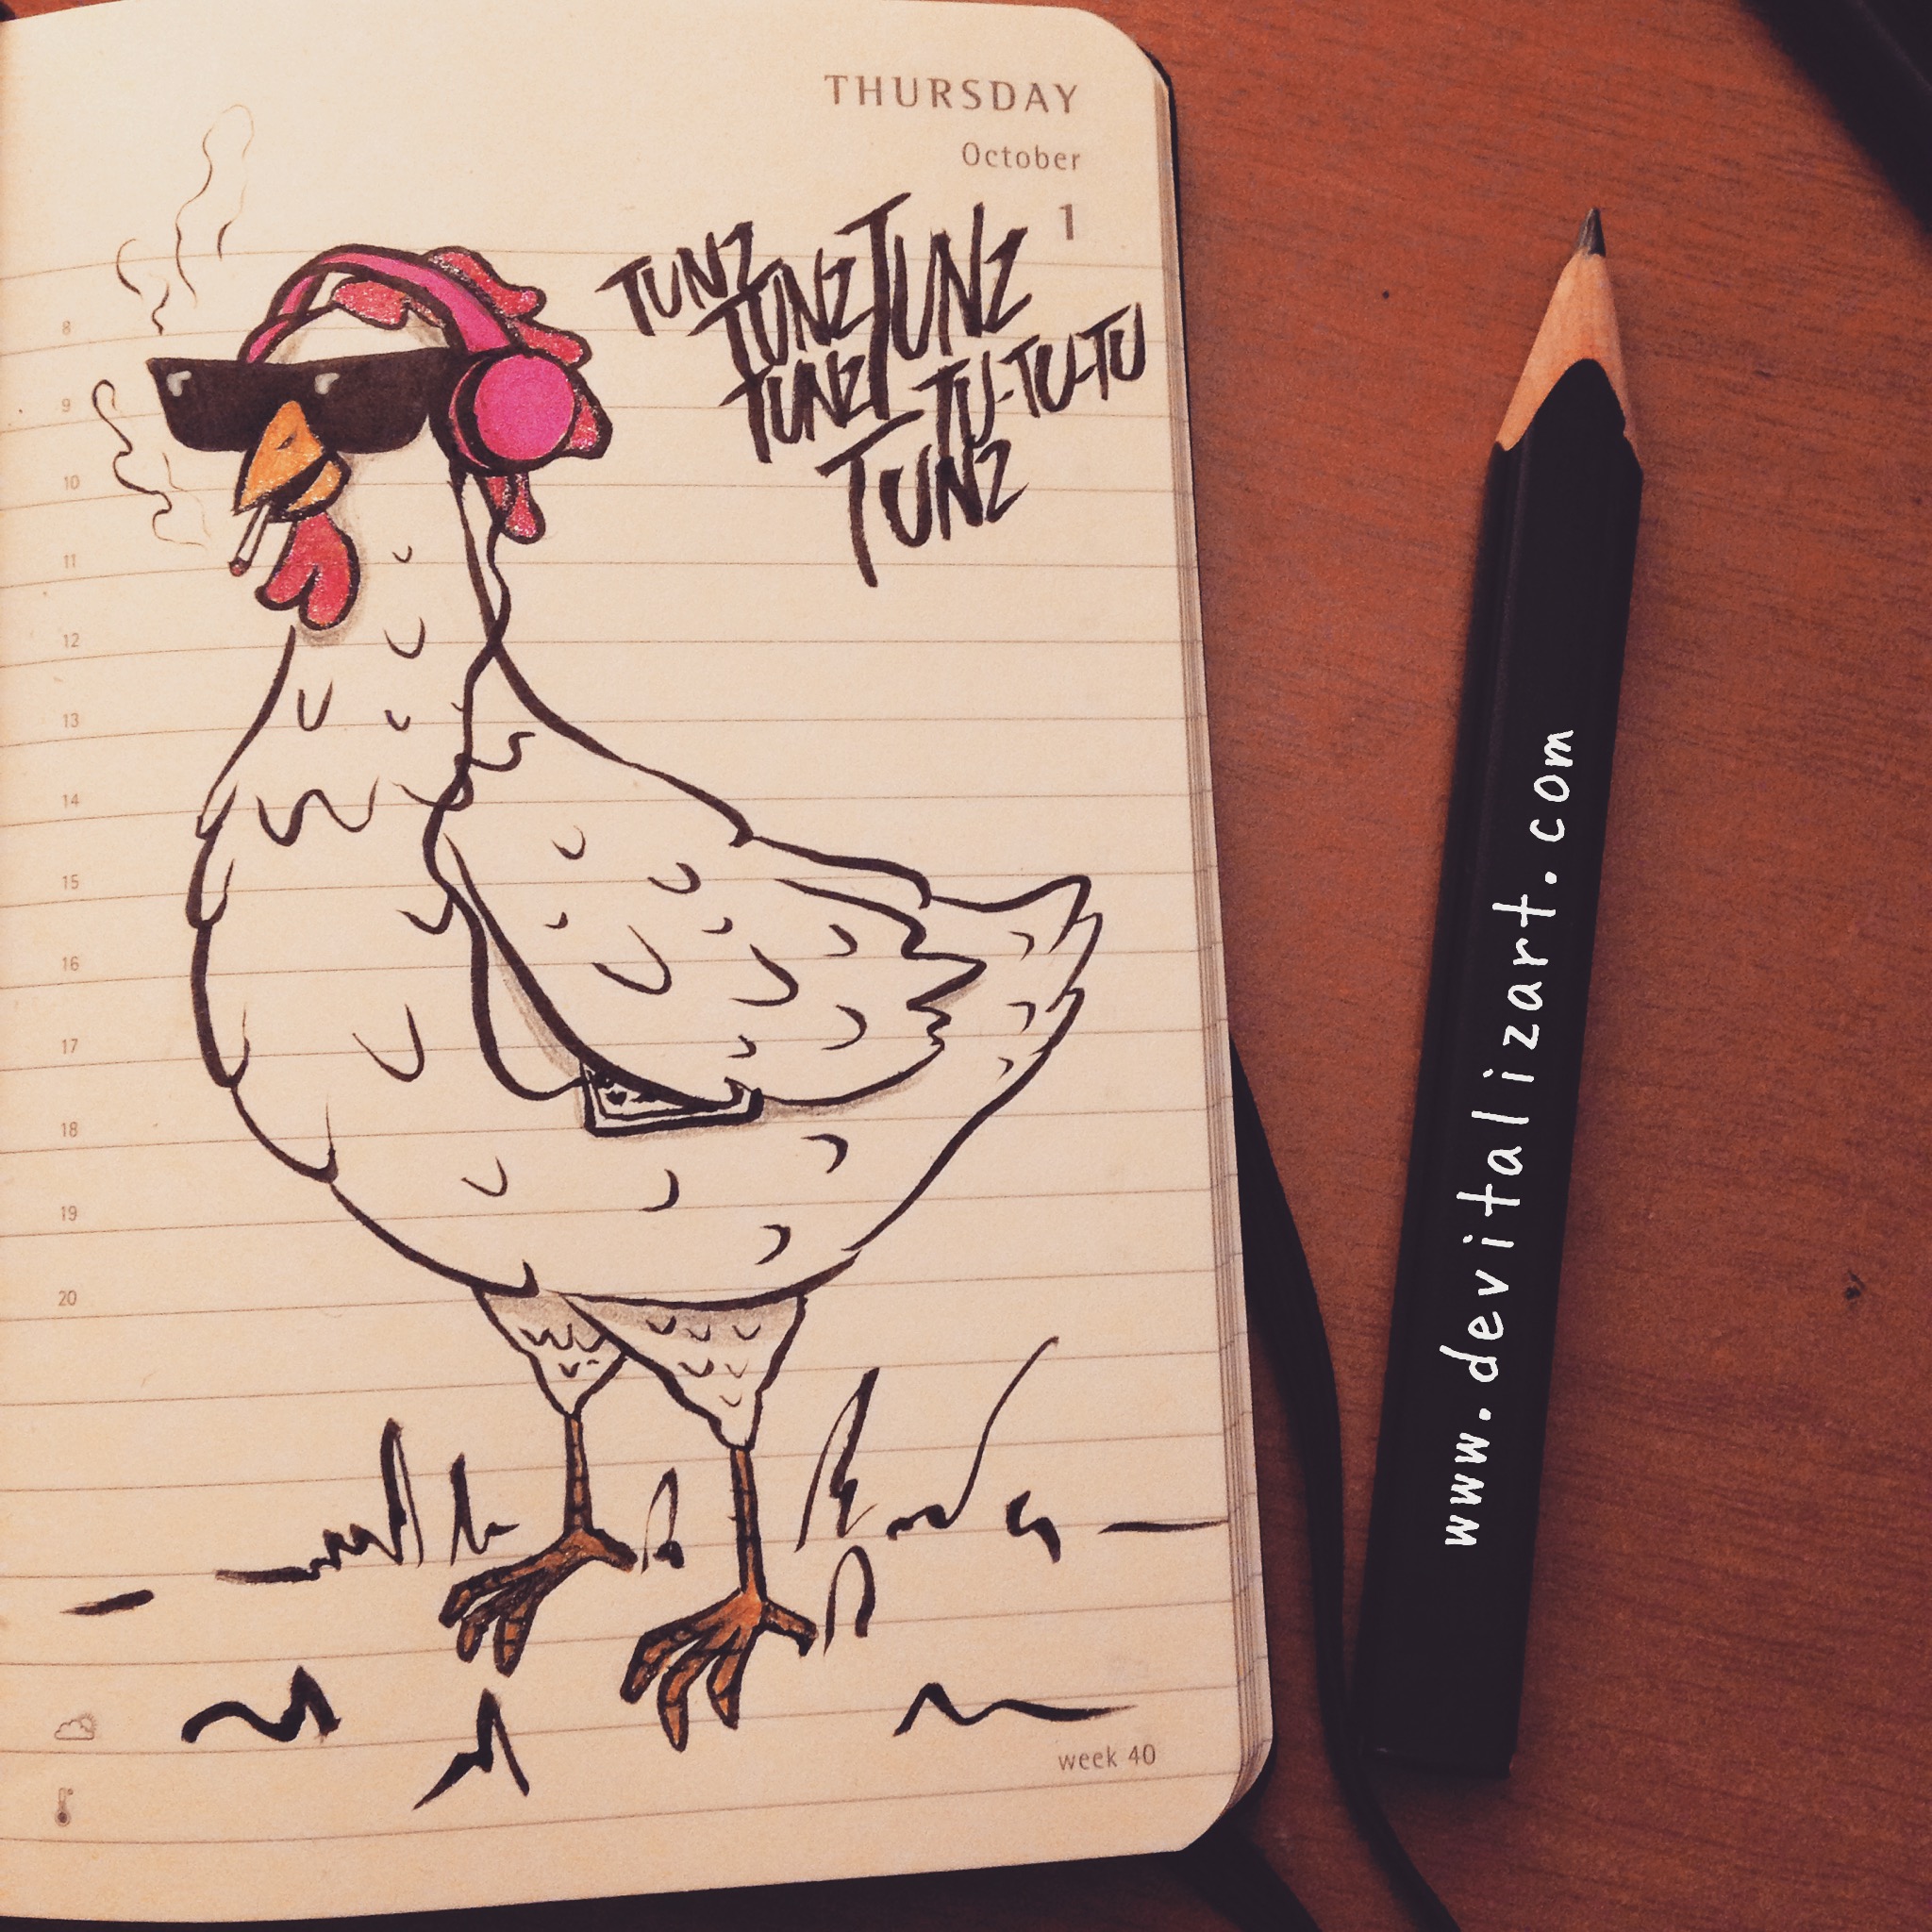 THURSDAY
October
1
TUNZ
TUNZ TUNZ
TUNZ TU-TU-TU
TUNZ
8
9
10
11
12
13
14
15
16
17
18
19
20
week 40
www.devitalizart.com